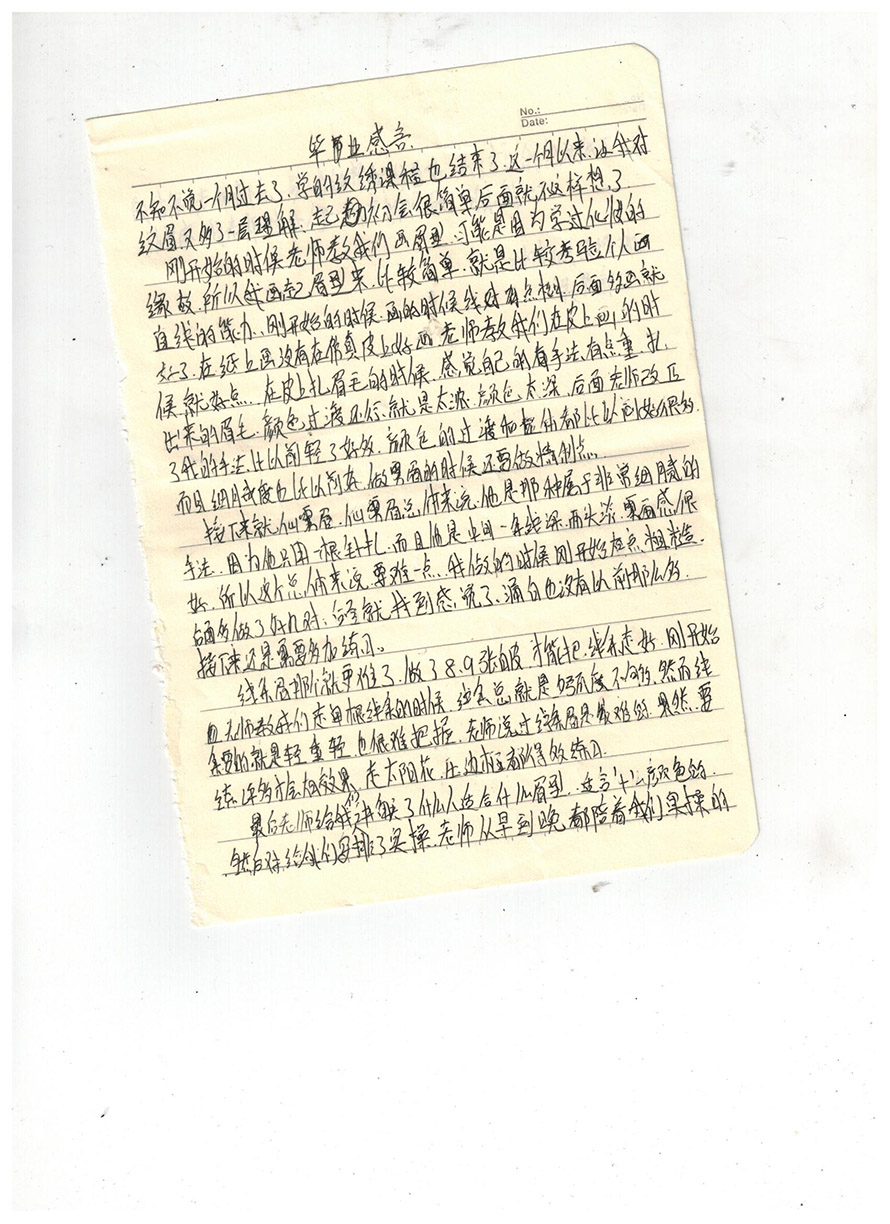 No.:
Date:
毕业感言
不知不觉一个月过去了，学的纹绣课程也结束了，这一个月以来，让我对
纹眉又多了一层理解，起初会很简单后面就不这样想了
刚开始的时候老师教我们画眉型，可能是因为学过化妆的
缘故，所以我画起眉型来，比较简单，就是比较考验个人画
直线的能力，刚开始的时候画的时候线对有点，后面多画就
好了，在纸上画没有在仿真皮上好画老师教我们在皮上画的时
候就好点，在皮上扎眉毛的时候，感觉自己的有手法有点重，扎
出来的眉毛，颜色过渡还行，就是太浓，颜色太深，后面老师改正
了我的手法比以前轻了好多，颜色的过渡和整体都比以前好很多，
而且细腻度也比以前好，做雾眉的时候还要做精创点
接下来就仙雾眉，仙雾眉总体来说，他是那种属于非常细腻的
手法，因为他只用一根针扎，而且他是中间一条线深，两头淡，雾面感很
好，所以这个总体来说，要难一点，我做的时候刚开始有点粗糙，
后面多做了好几对，后就找到感觉了，漏白也没有以前那么多，
接下来还是需要多加练习。
线条眉那个就更难了，做了8.9张皮才能把线条走好，刚开始
老师教我们走单根线条的时候，总就是弧度不够，然而线
条要的就是轻重轻，也很难把握，老师说过线条眉是最难的，果然，要
练许多才会有效果，走太阳花，压边都得多练习
最后老师给我们讲了什么人适合什么眉型，适合什么颜色的，
然后给我们安排了实操，老师从早到晚都陪着我们实操的